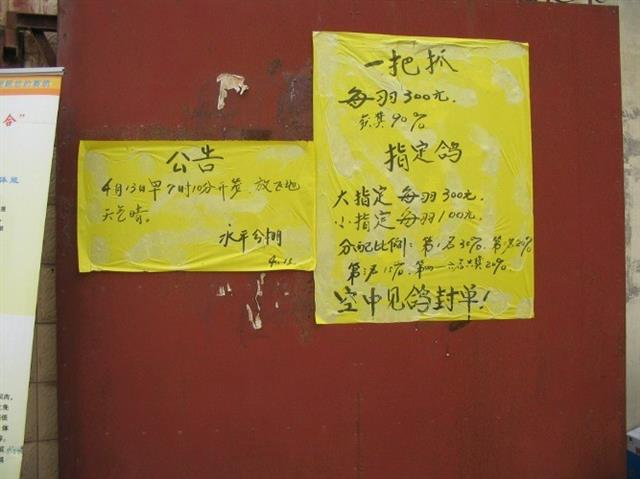 公告
4月13日早7时10分开笼，放飞地
天气晴。
永平分棚
4.13
一把抓
每羽300元.
获奖90%
指定鸽
大指定每羽300元.
小指定每羽100元.
分配比例：第1名30%. 第2名20%
第3名15%. 第四—六名共奖20%
空中见鸽封单！
合”